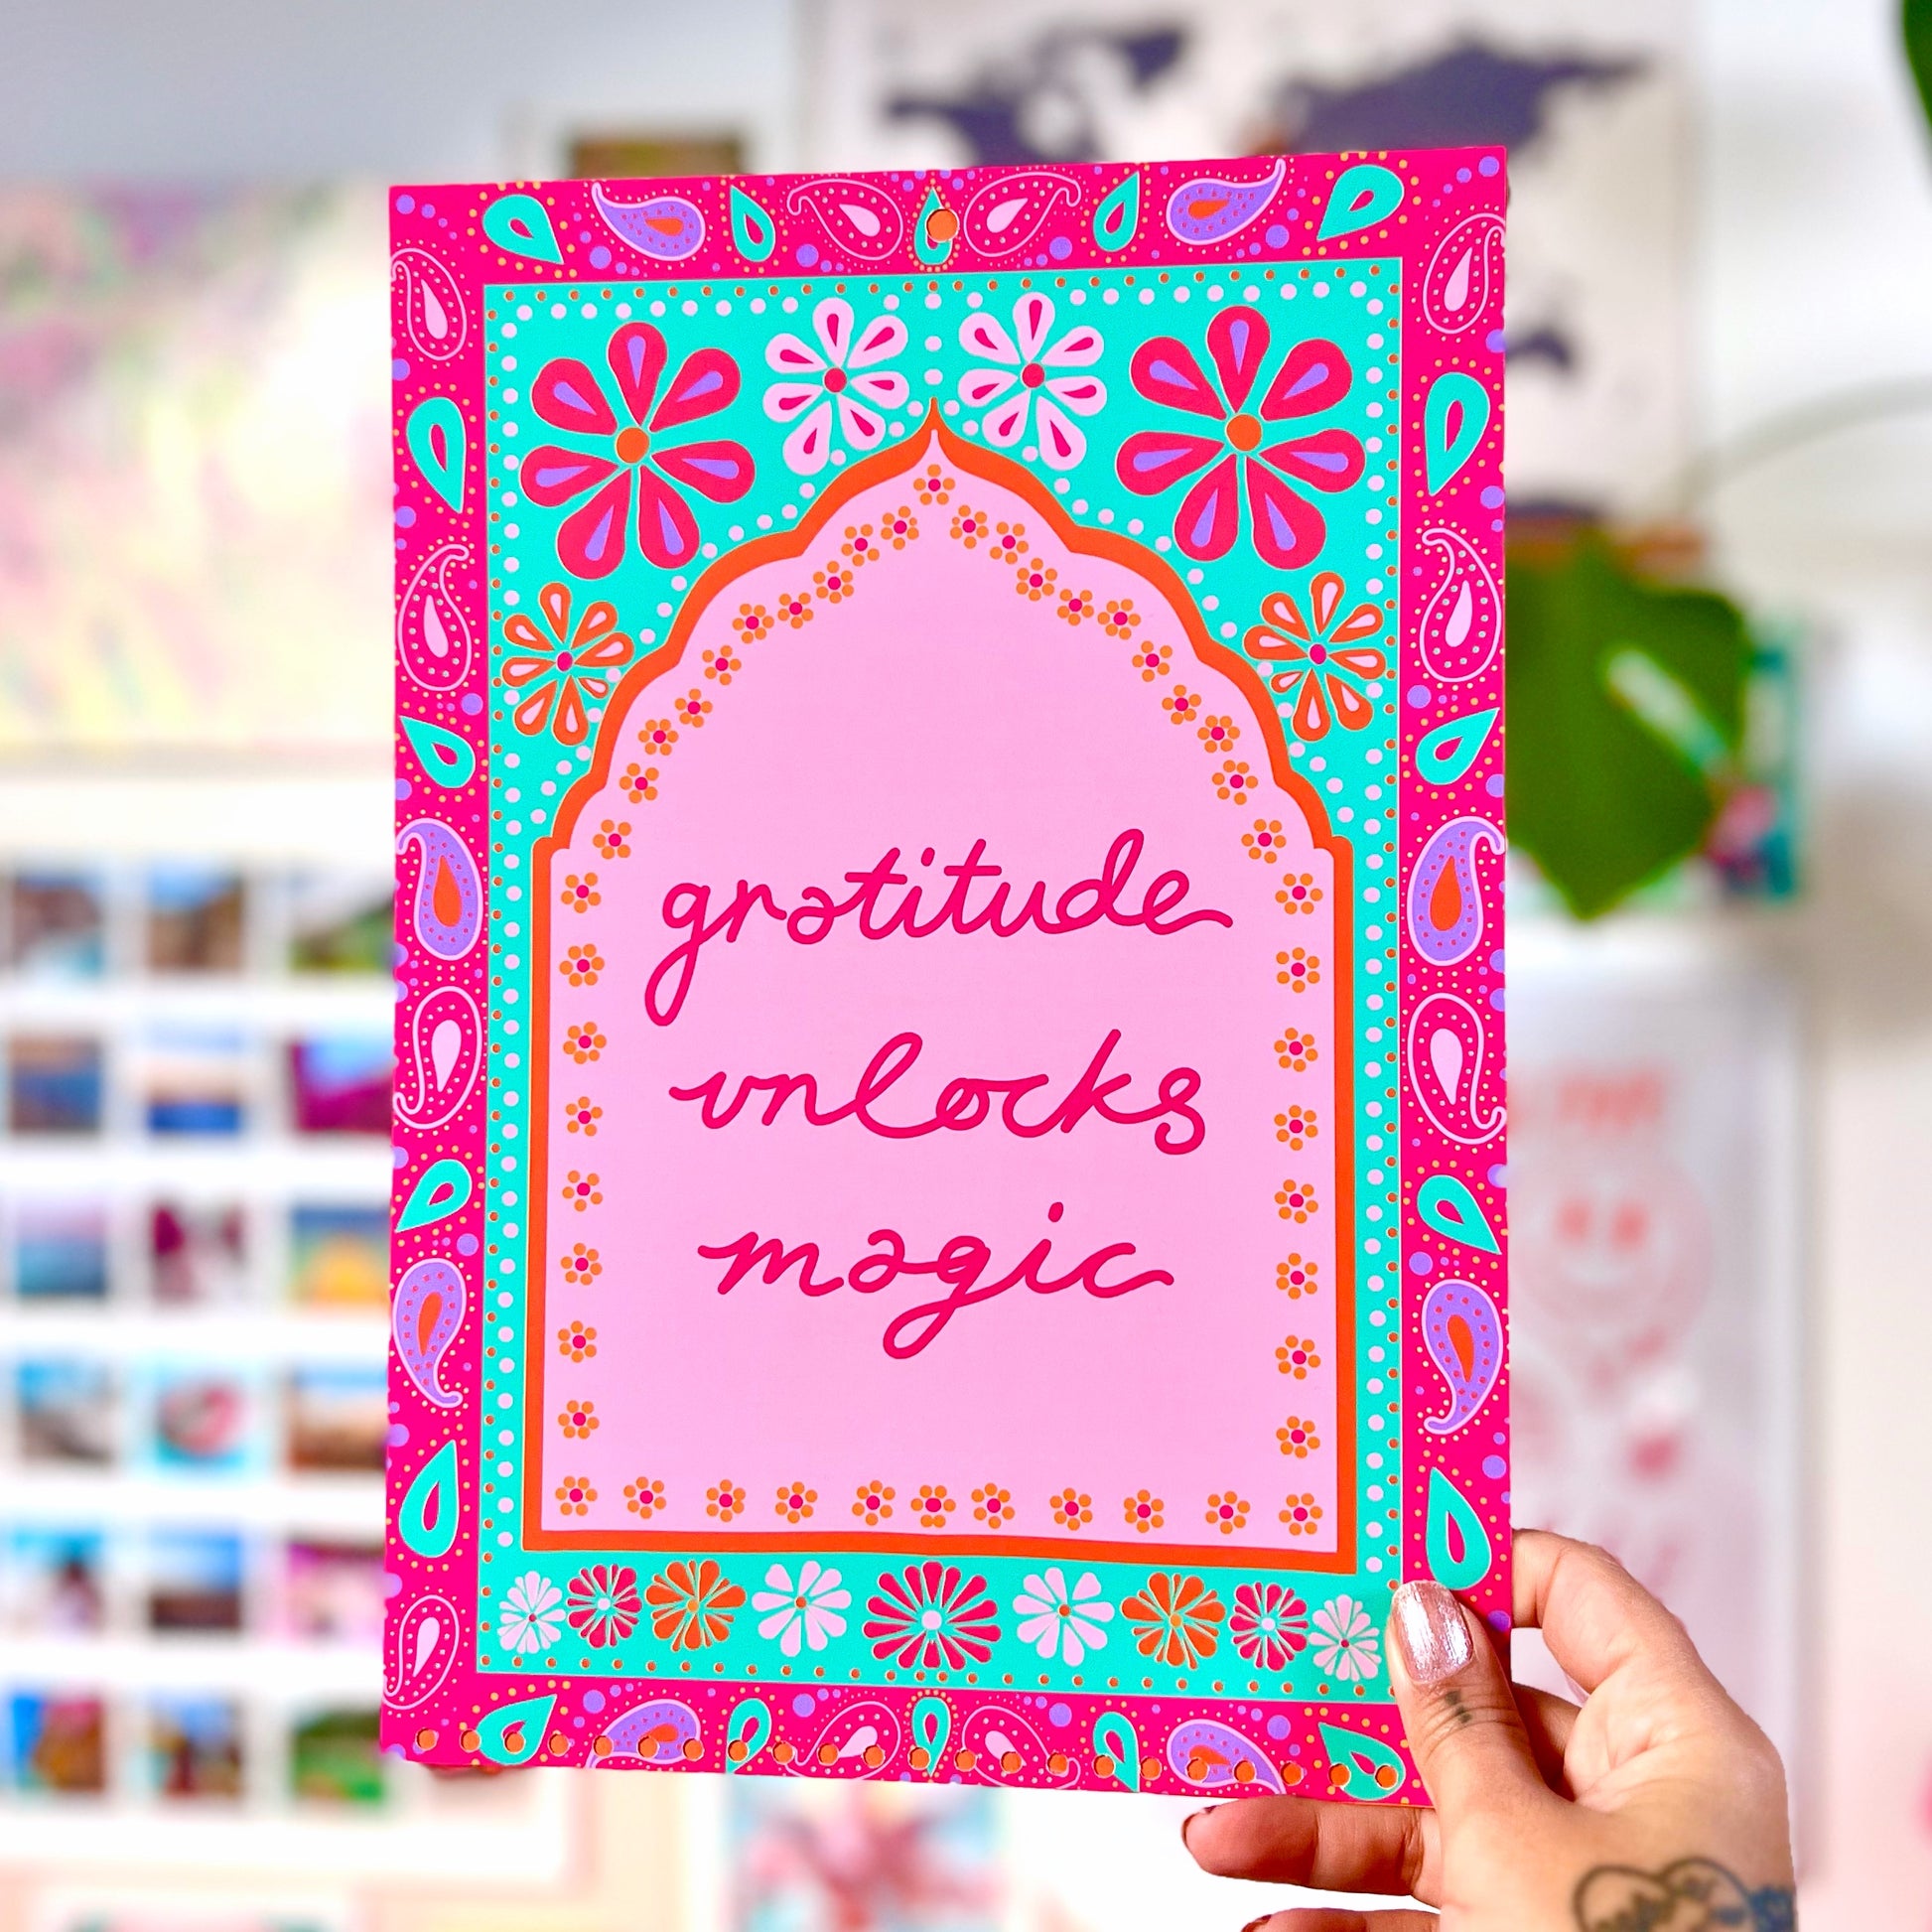 gratitude
unlocks
magic